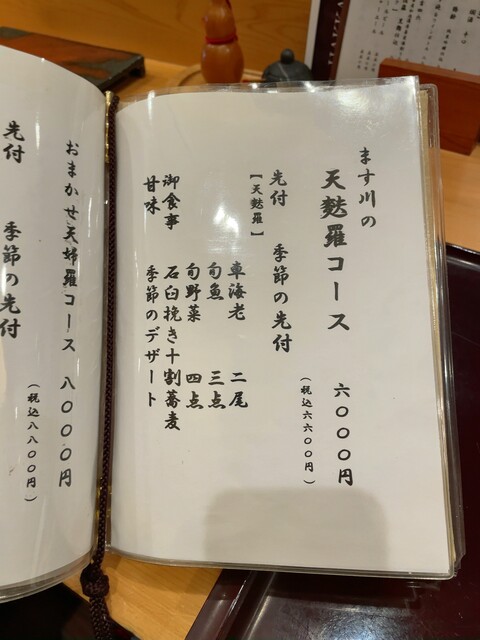 ます川の
天麩羅コース 六〇〇〇円
(税込六六〇〇円)
先付 季節の先付
【天麩羅】
車海老 二尾
旬魚 三点
旬野菜 四点
御食事 石臼挽き十割蕎麦
甘味 季節のデザート
おまかせ天婦羅コース 八〇〇〇円
(税込八八〇〇円)
先付 季節の先付